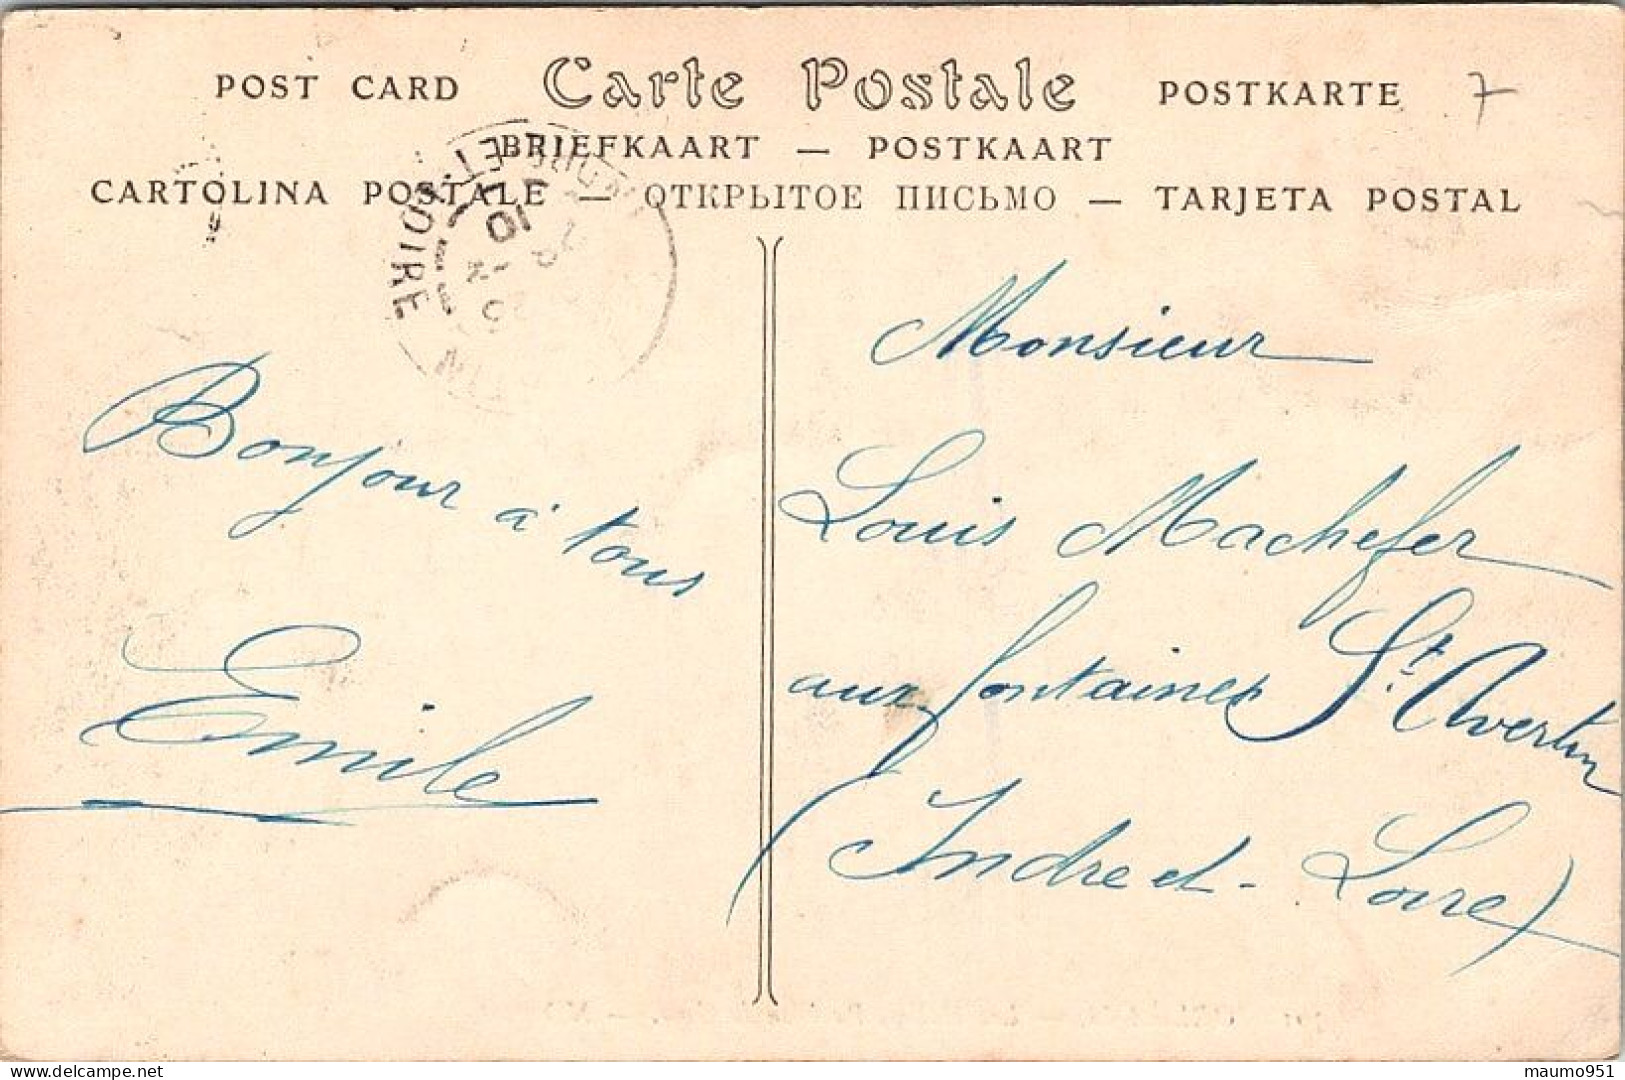 POST CARD Carte Postale POSTKARTE 7
BRIEFKAART — POSTKAART
CARTOLINA POSTALE — ОТКРЫТОЕ ПИСЬМО — TARJETA POSTAL
ET LOIRE
10
Bonjour à tous
Emile
Monsieur
Louis Machefer
aux fontaines St. Avertin
(Indre et - Loire)
delcampe.net
maumo951